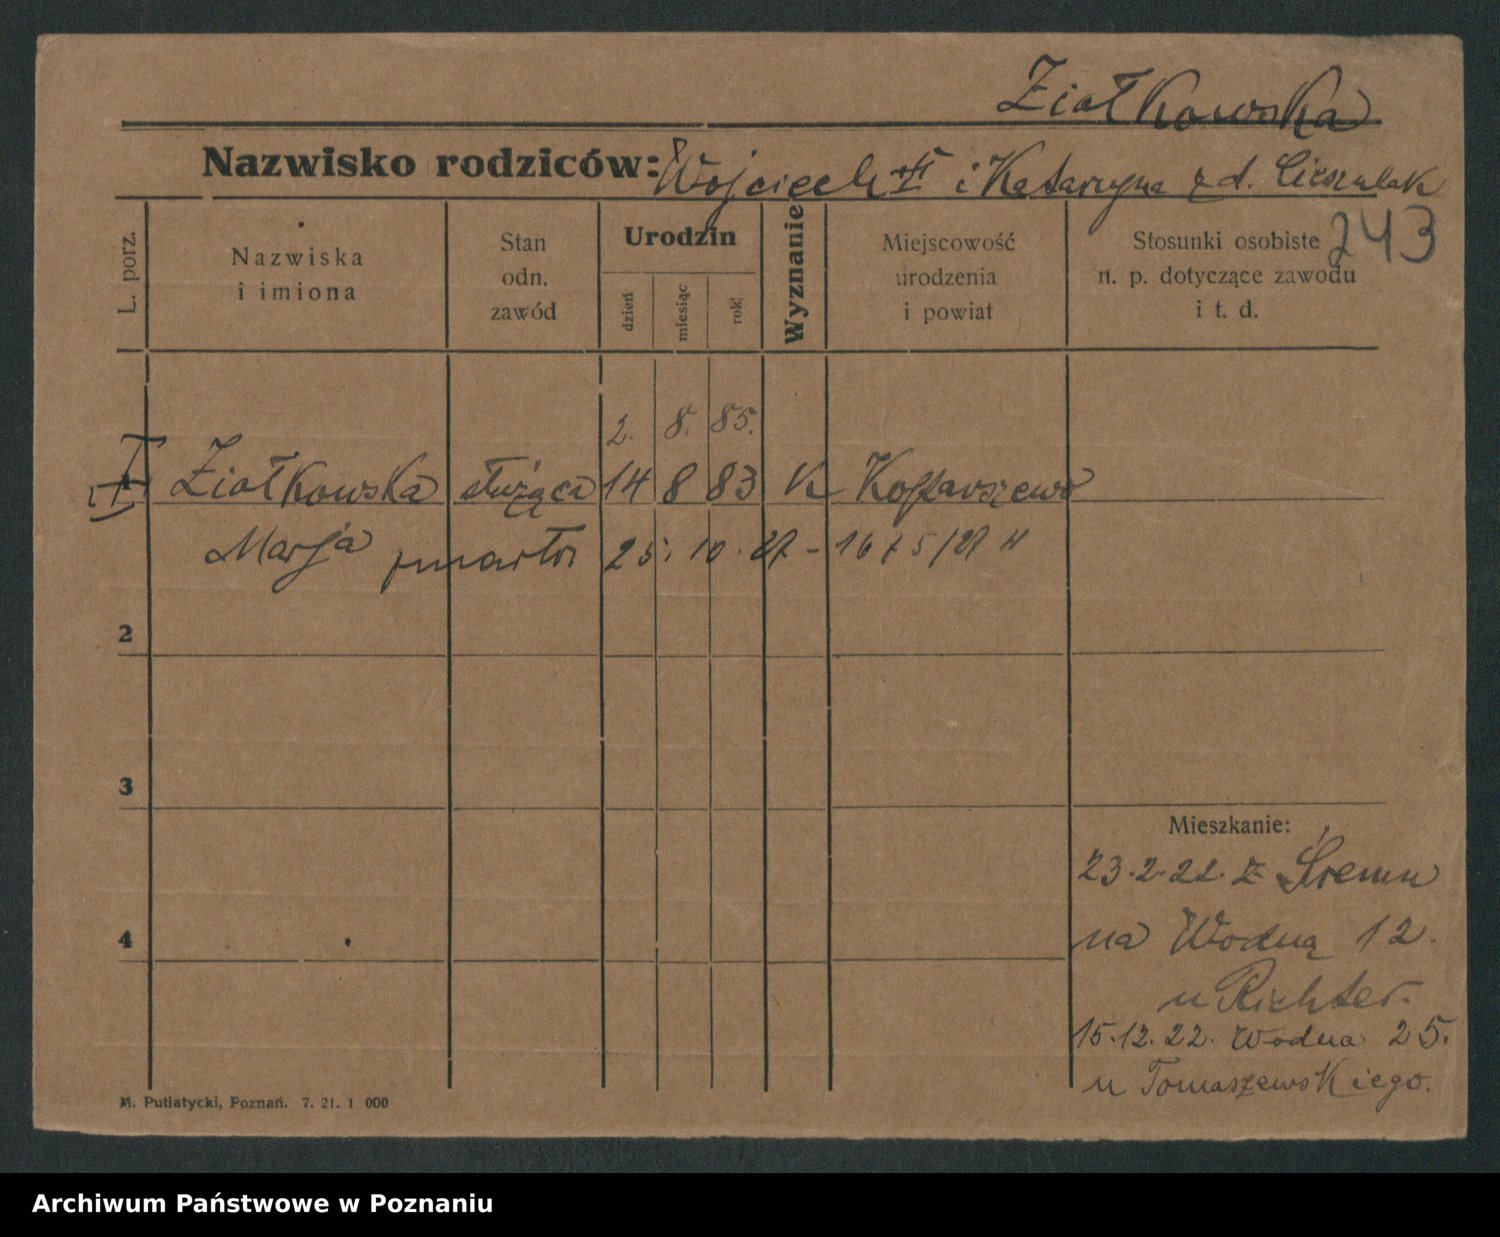 Ziołkowska
Nazwisko rodziców: Wojciech i Katarzyna z d. Cieszulak
243
L. porz.
Nazwiska
i imiona
Stan
odn.
zawód
Urodzin
dzień
miesiąc
rok
Wyznanie
Miejscowość
urodzenia
i powiat
Stosunki osobiste
n. p. dotyczące zawodu
i t. d.
2. 8. 85.
1 Ziołkowska służąca 14 8 83 K
Marja zmarła 25. 10. 27 - 1675/27
2
3
4
Mieszkanie:
23.2.22. z Śremu
na Wodną 12.
u Richter.
15.12.22. Wodna 25.
u Tomaszewskiego.
M. Putiatycki, Poznań. 7. 21. 1 000
Archiwum Państwowe w Poznaniu